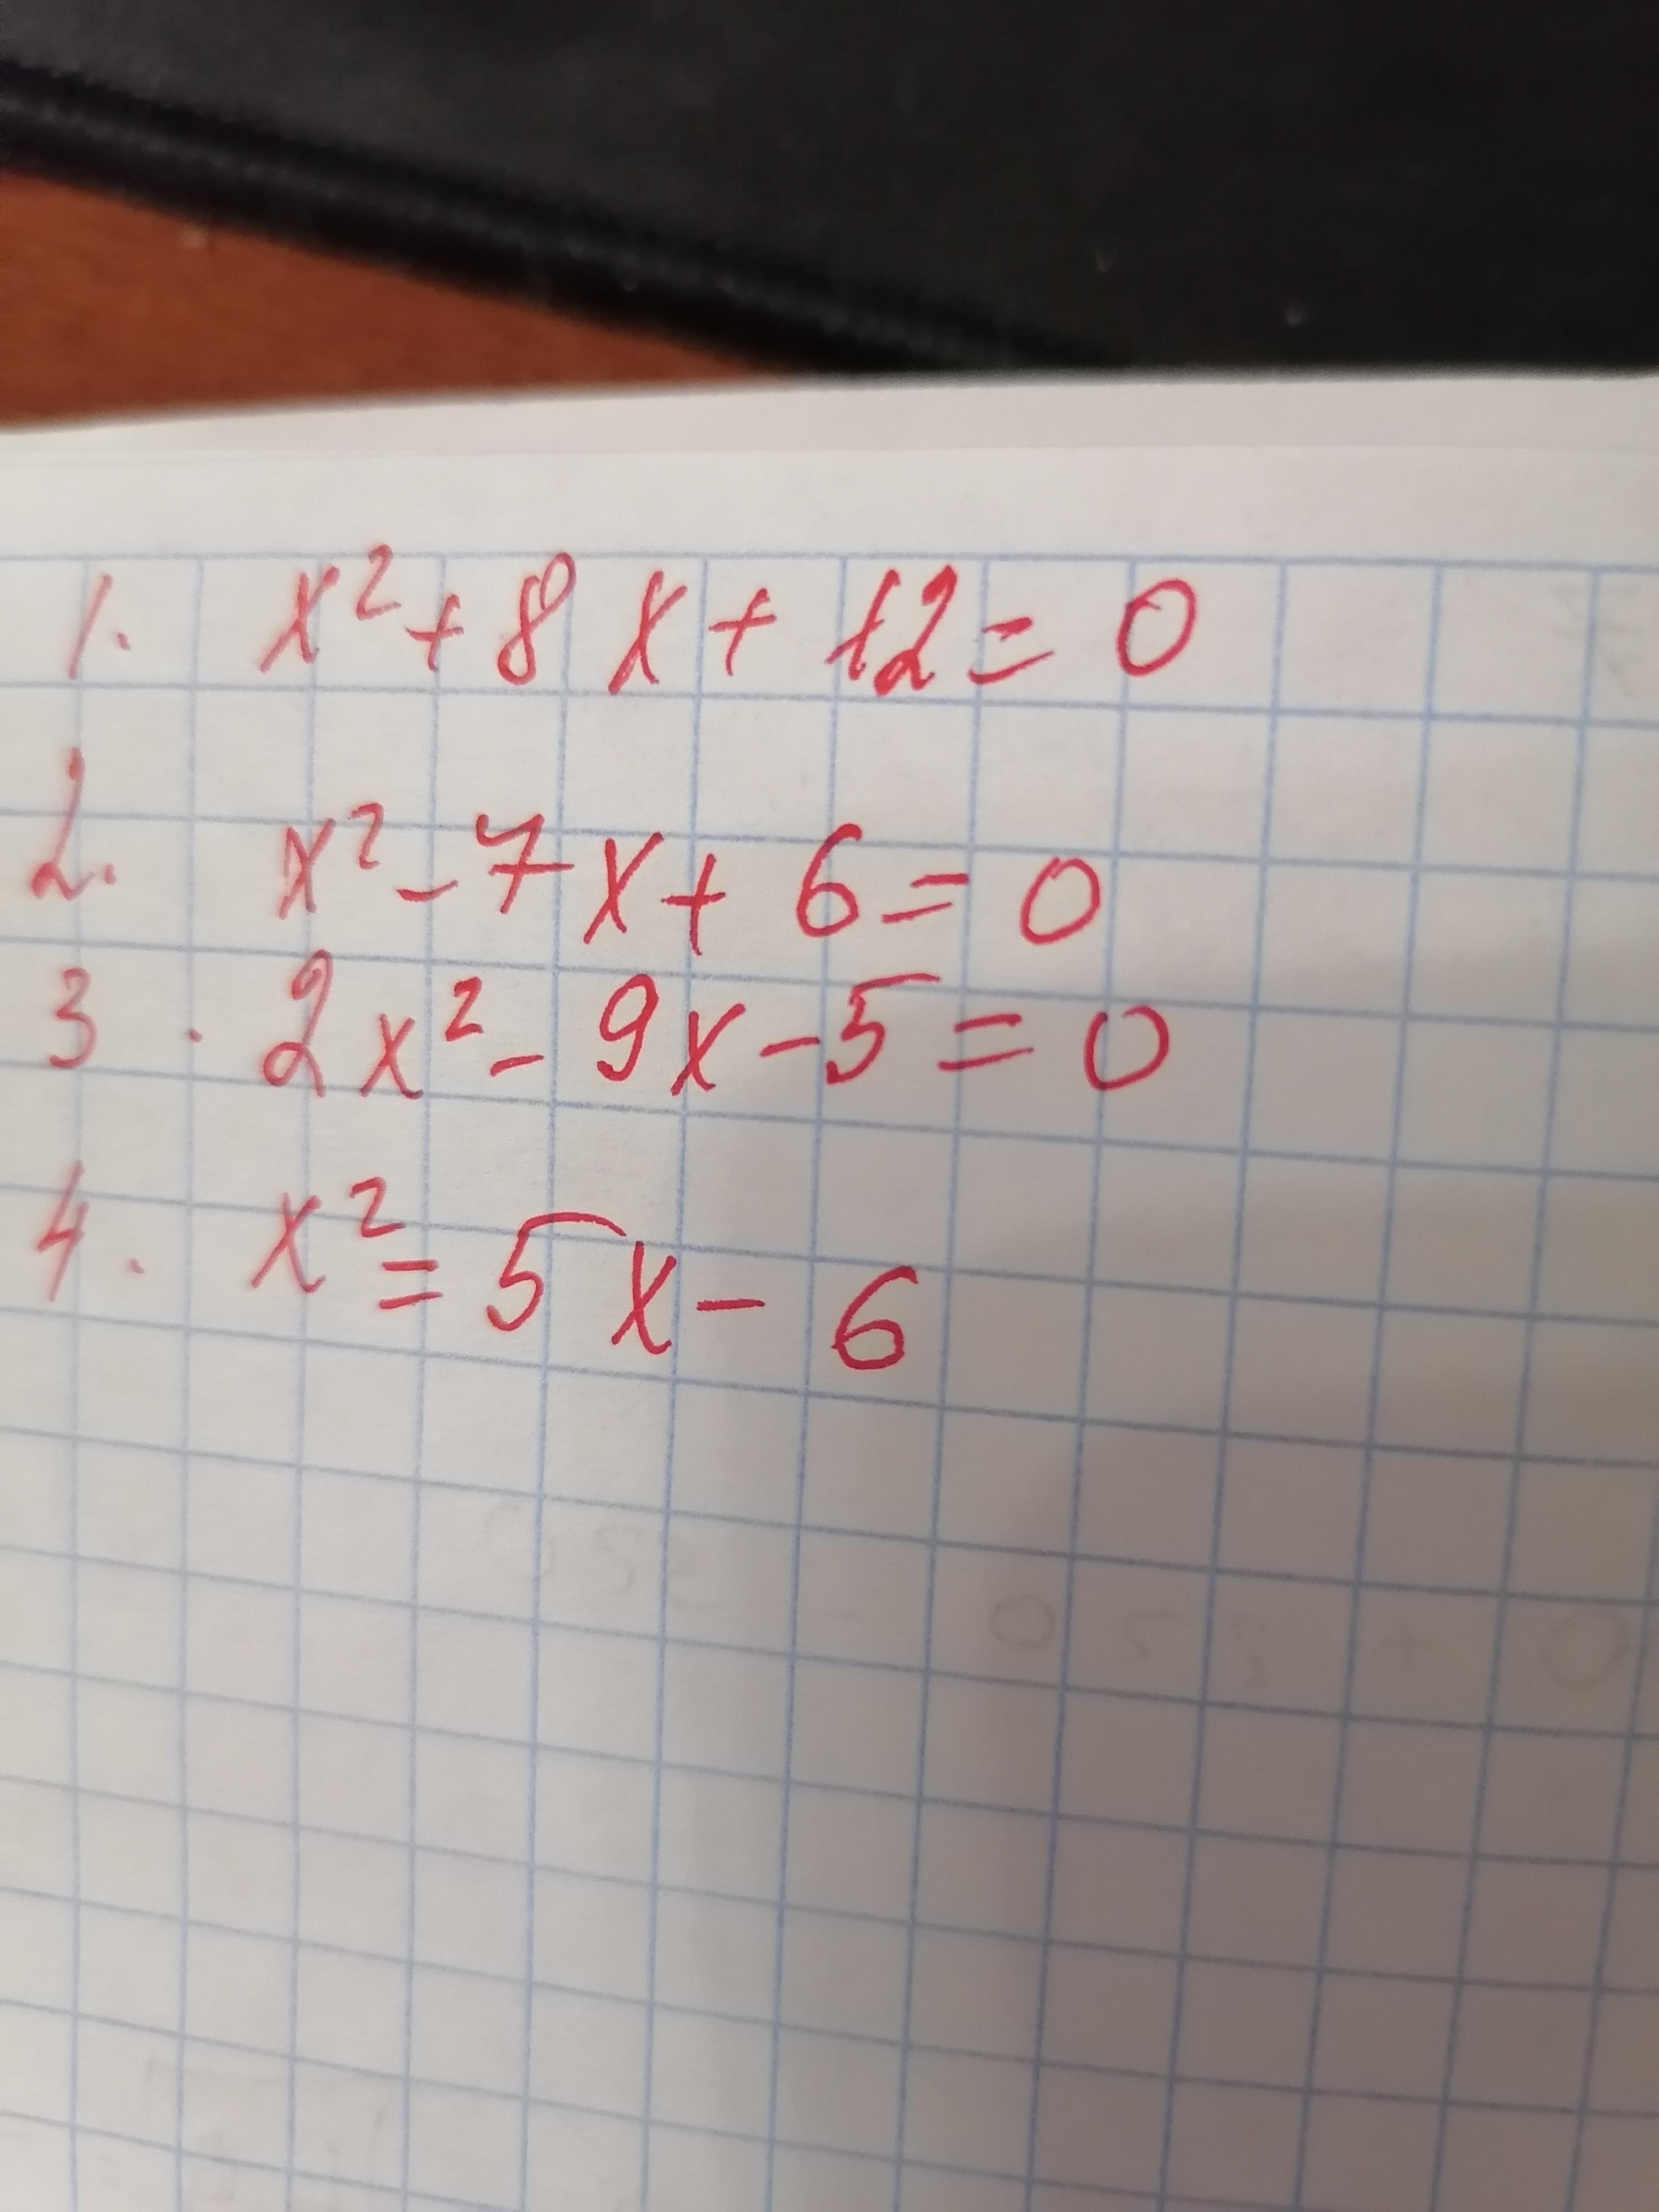 1. x² + 8x + 12 = 0
2. x² - 7x + 6 = 0
3. 2x² - 9x - 5 = 0
4. x² = 5x - 6